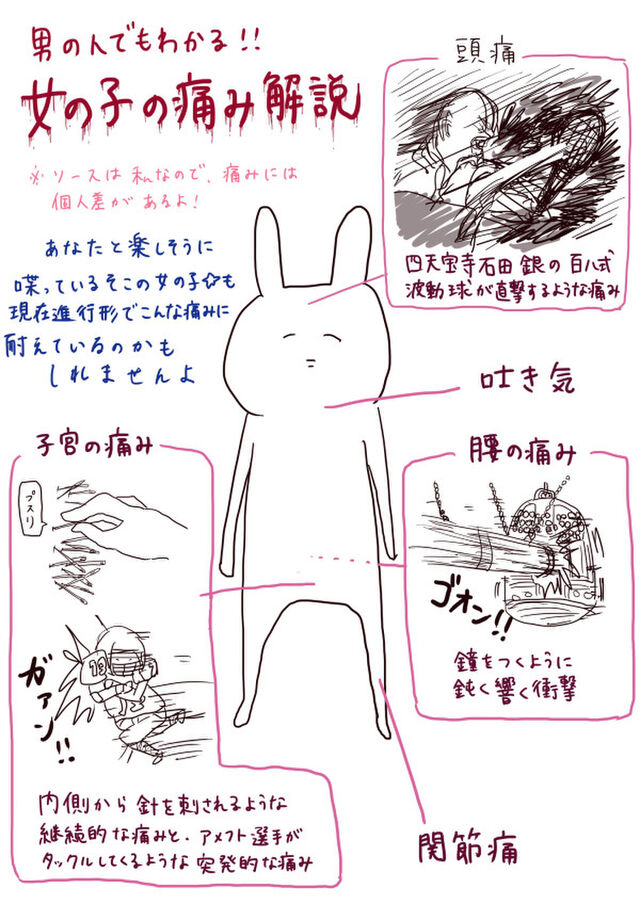 男の人でもわかる!!
女の子の痛み解説
※ソースは私なので、痛みには
個人差があるよ!
あなたと楽しそうに
喋っているそこの女の子☆も
現在進行形でこんな痛みに
耐えているのかも
しれませんよ
頭痛
四天宝寺石田銀の百八式
波動球が直撃するような痛み
吐き気
子宮の痛み
プスリ
ガァン!!
内側から針を刺されるような
継続的な痛みと、アメフト選手が
タックルしてくるような突発的な痛み
腰の痛み
ゴオン!!
鐘をつくように
鈍く響く衝撃
関節痛